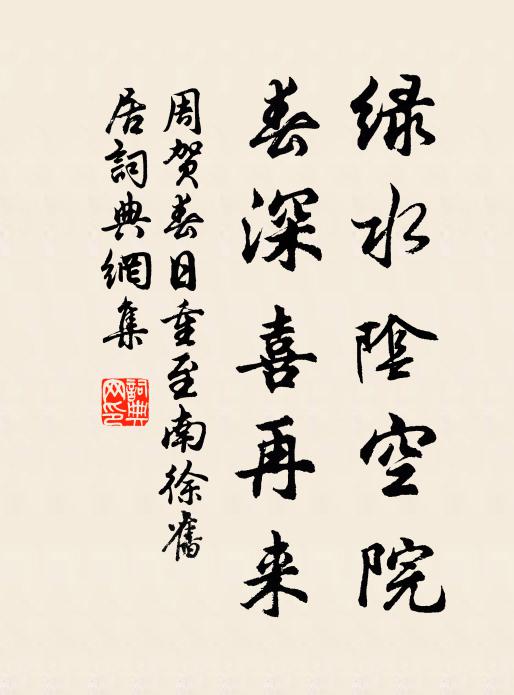 緑水陰空院
春深喜再来
周賀春日重至南徐舊
居詞典網集
詞典
网印